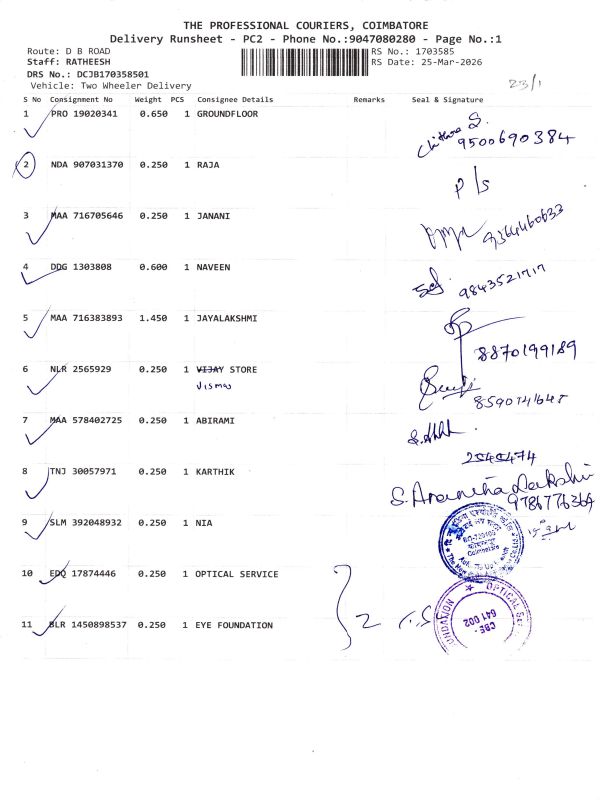 THE PROFESSIONAL COURIERS, COIMBATORE
Delivery Runsheet - PC2 - Phone No.:9047080280 - Page No.:1
Route: D B ROAD RS No.: 1703585
Staff: RATHEESH RS Date: 25-Mar-2026
DRS No.: DCJB170358501
Vehicle: Two Wheeler Delivery
23/1
S No Consignment No Weight PCS Consignee Details Remarks Seal & Signature
1 PRO 19020341 0.650 1 GROUNDFLOOR
Chithra S.
9500690384
2 NDA 907031370 0.250 1 RAJA
P/s
3 MAA 716705646 0.250 1 JANANI
9364460633
4 DDG 1303808 0.600 1 NAVEEN
9843521717
5 MAA 716383893 1.450 1 JAYALAKSHMI
8870199189
6 NLR 2565929 0.250 1 VIJAY STORE
Vismay
7 MAA 578402725 0.250 1 ABIRAMI
8 TNJ 30057971 0.250 1 KARTHIK
9786776369
9 SLM 392048932 0.250 1 NIA
Coimbatore
10 EDQ 17874446 0.250 1 OPTICAL SERVICE
2
11 BLR 1450898537 0.250 1 EYE FOUNDATION
CBE -
641 002